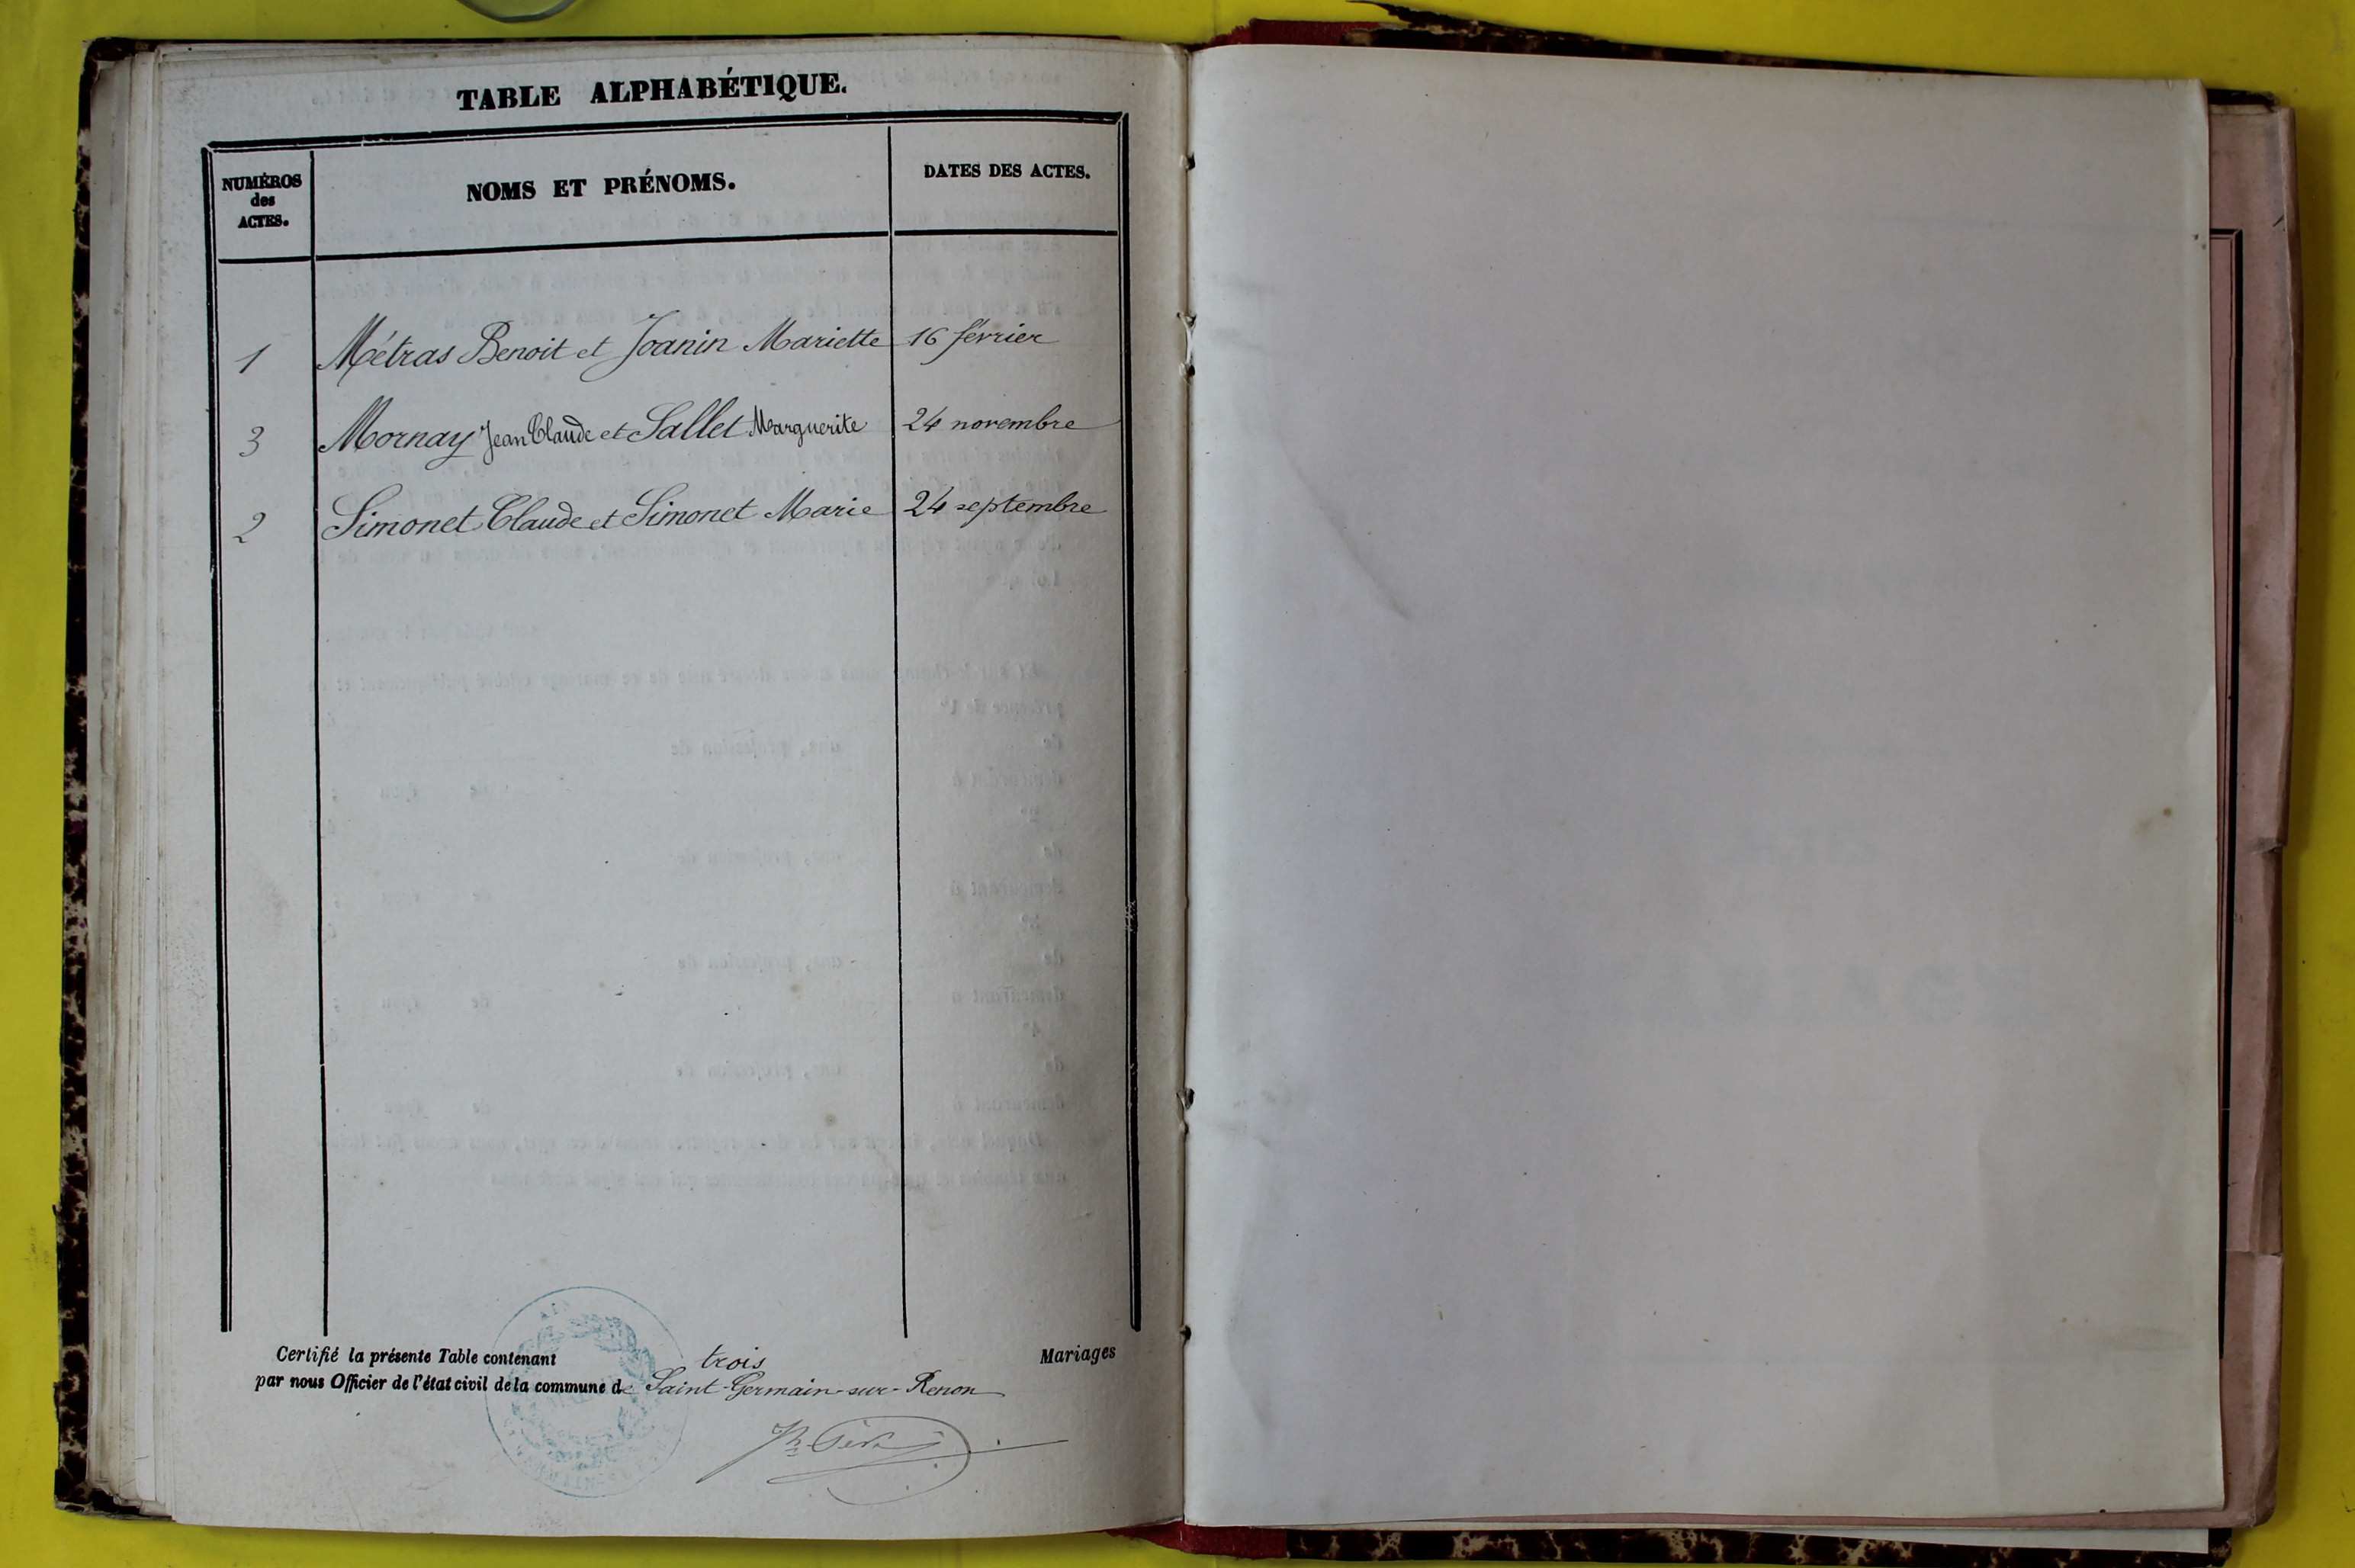 TABLE ALPHABÉTIQUE.
NUMÉROS
des
ACTES.
NOMS ET PRÉNOMS.
DATES DES ACTES.
1 Métras Benoit et Joanin Mariette 16 février
3 Mornay Jean Claude et Sallet Marguerite 24 novembre
2 Simonet Claude et Simonet Marie 24 septembre
Certifié la présente Table contenant trois Mariages
par nous Officier de l'état civil de la commune de Saint-Germain-sur-Renon